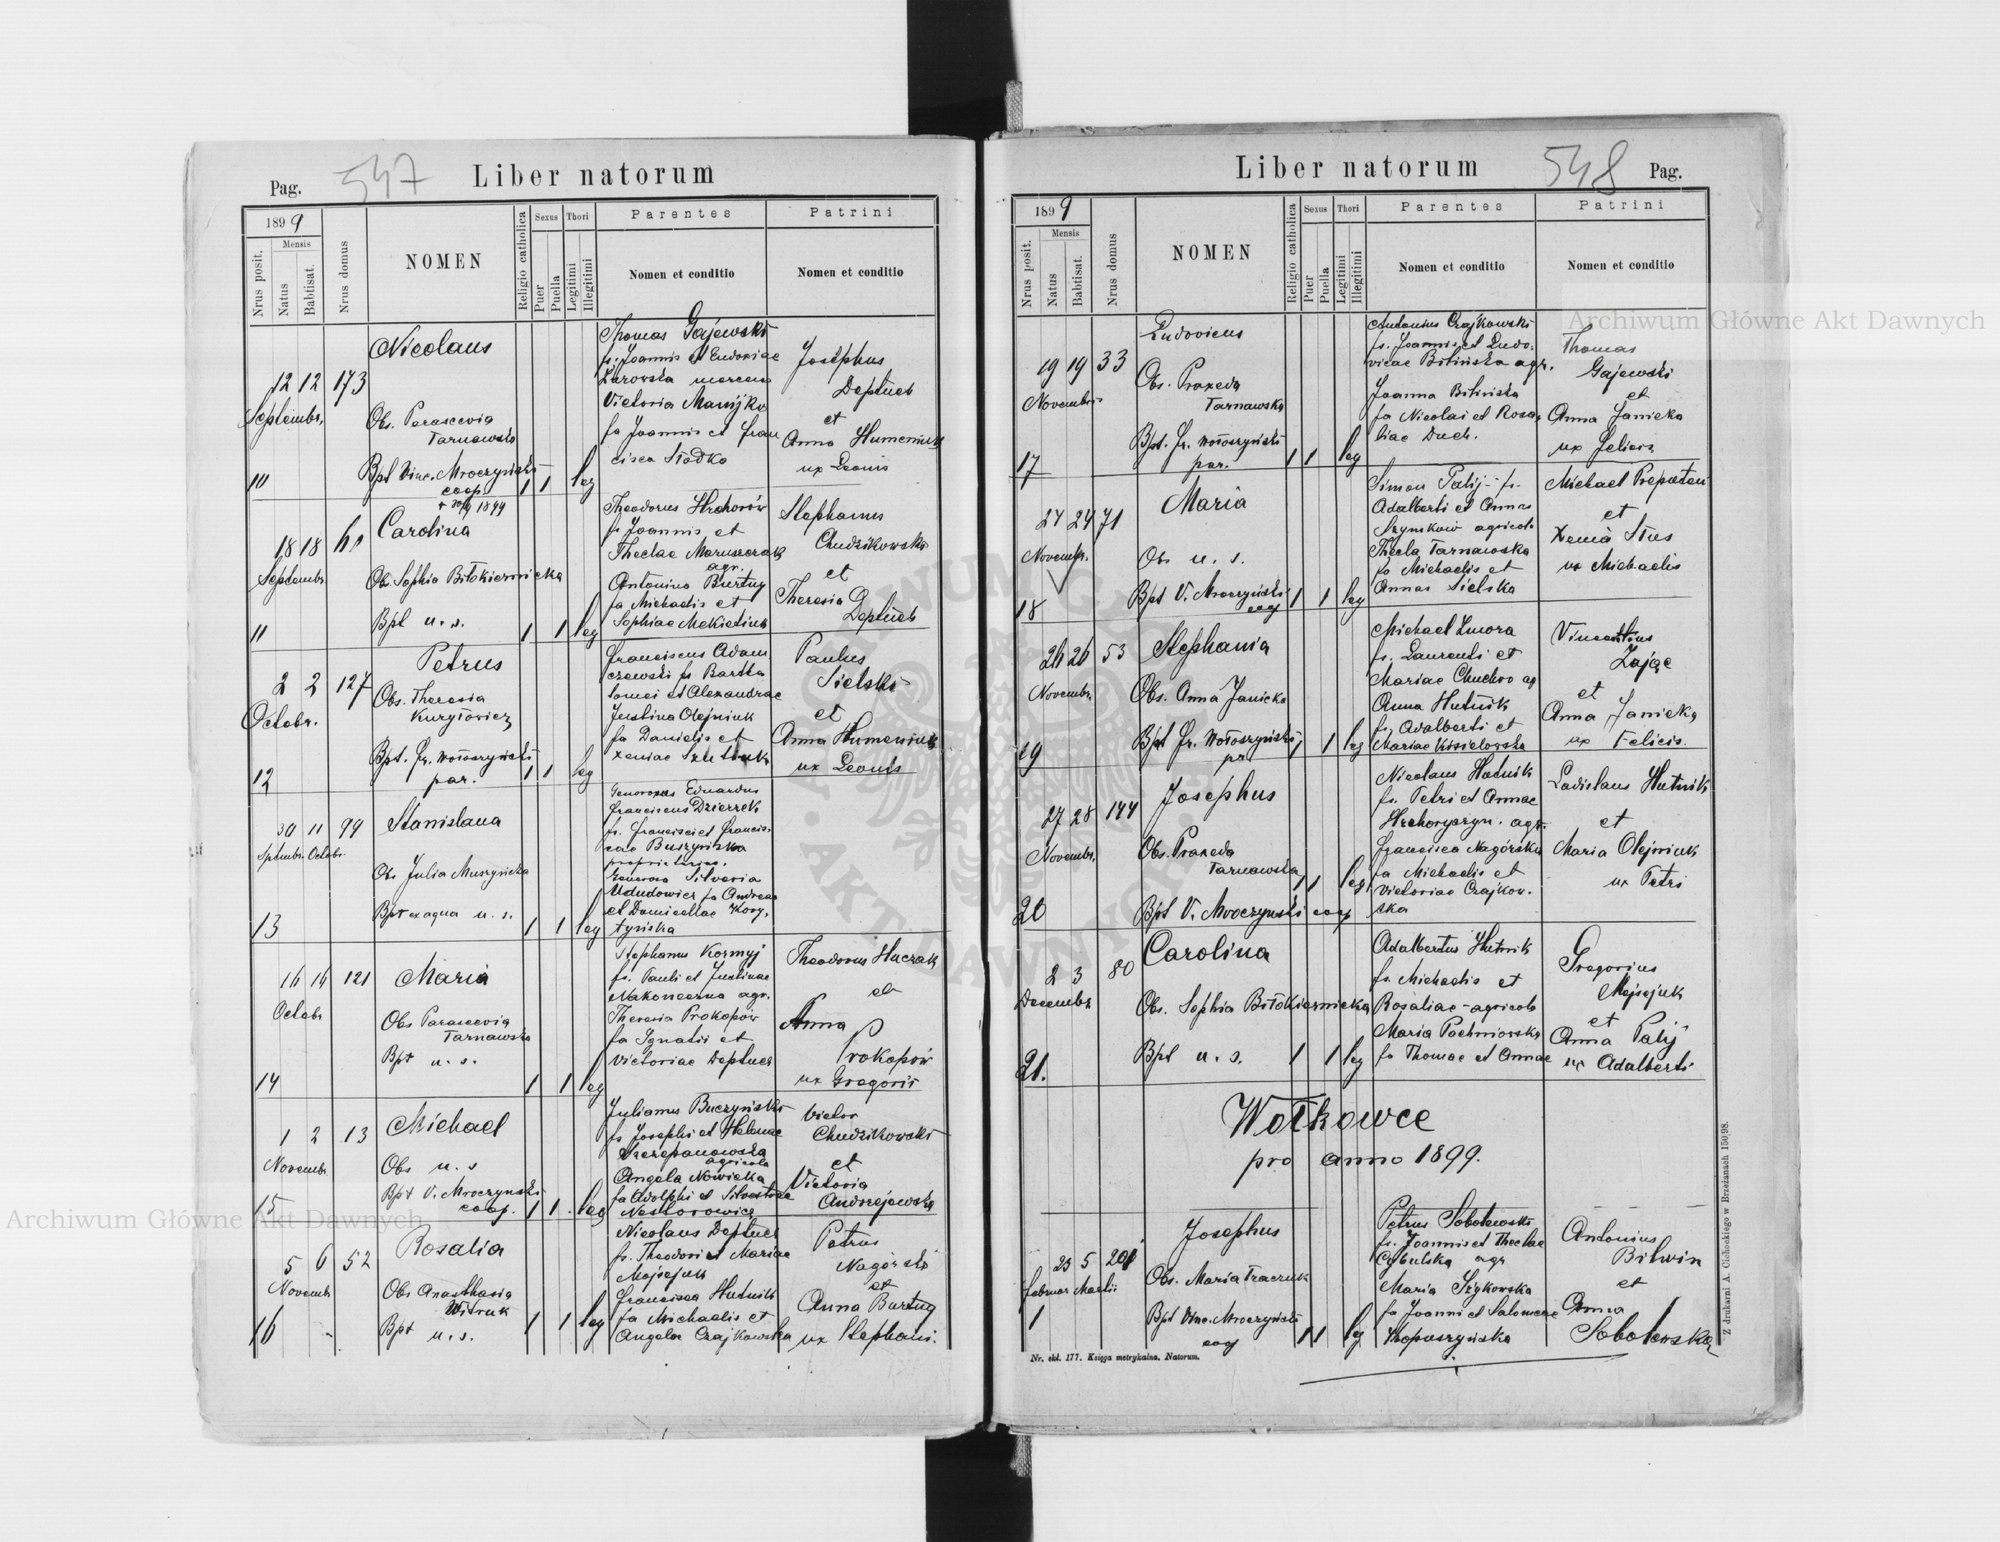 Pag. 547 Liber natorum
1899
Nrus posit.
Mensis
Natus
Babtisat.
Nrus domus
NOMEN
Religio catholica
Sexus
Puer
Puella
Thori
Legitimi
Illegitimi
Parentes
Nomen et conditio
Patrini
Nomen et conditio
10
12 12 173
Septembr.
Nicolaus
Obs. Parascevia
Tarnawska
Bpt Vinc. Mroczyński
coop
1 1 leg
Thomas Gajewski
fs. Joannis et Eudoxiae
Victoria
fa Joannis et Fran
cisca
Josephus
Deptuch
et
Anna Humeniuk
ux Leonis
11
18 18
Septembr.
1899
Carolina
Obs Sophia Białokiernicka
Bpt u. s.
1 1 leg
Theodorus Hrehorów
fs Joannis et
Theclae Maruszczak
agr.
Antonina Burtny
fa Michaelis et
Sophiae
Stephanus
Chudzikowski
et
Theresia
Deptuch
12
2 2 127
Octobr.
Petrus
Obs. Theresia
Kuryłowicz
Bpt. Fr. Wołoszyński
par.
1 1 leg
Franciscus Adam
czewski fs Bartho
lomei et Alexandrae
Justina Olejniuk
fa Danielis et
Xeniae
Paulus
Sielski
et
Anna Humeniuk
ux Leonis
13
30 11 99
Septembr. Octobr.
Stanislava
Obs Julia Muszyńska
Bpt ex aqua u. s.
1 1 leg
Generosus Eduardus
Franciscus Dzierżek
fs. Francisci et Francis-
cae Buszyńska
proprietarius.
Generosa Silveria
Ududowicz fa Andreae
et Domicellae Kory,
tyńska
14
16 16 121
Octobr
Maria
Obs Parascevia
Tarnawska
Bpt u. s.
1 1 leg
Stephanus Kormyj
fs. Pauli et Justinae
Nakoneczna agr.
Theresia Prokopów
fa Ignatii et
Victoriae Deptuch
Theodorus Huczak
et
Anna
Prokopów
ux Gregorii
15
1 2 13
Novembr
Michael
Obs u. s
Bpt V. Mroczyński
coop.
1 1 leg
Julianus Buczyński
fs Josephi et Helenae
Szczepanowska
agricola
Angela Nowicka
fa Adolphi et Silvestrae
Nestorowicz
Victor
Chudzikowski
et
Victoria
Andrzejewska
16
5 6 52
Novembr
Rosalia
Obs Anasthasia
Witruk
Bpt u. s.
1 1 leg
Nicolaus Deptuch
fs. Theodori et Mariae
Mojsejuk
Francisca Hutnik
fa Michaelis et
Angela Czajkowska
Petrus
Nagórski
et
Anna Burtny
ux Stephani.
Liber natorum 548 Pag.
1899
Nrus posit.
Mensis
Natus
Babtisat.
Nrus domus
NOMEN
Religio catholica
Sexus
Puer
Puella
Thori
Legitimi
Illegitimi
Parentes
Nomen et conditio
Patrini
Nomen et conditio
17
19 19 33
Novembris
Ludovicus
Obs. Praxeda
Tarnawska
Bpt. Fr. Wołoszyński
par.
1 1 leg
Antonius Czajkowski
fs. Joannis et Ludo-
vicae Bilińska agr.
Joanna Bilińska
fa Nicolai et Rosa-
liae Duch.
Thomas
Gajewski
et
Anna Janicka
ux Felicis
18
24 24 71
Novembr.
Maria
Obs u. s.
Bpt V. Mroczyński
coop
1 1 leg
Simon Palij fs.
Adalberti et Annae
Szymków agricola
Thecla Tarnawska
fa Michaelis et
Annae Sielska
Michael
et
Xenia
ux Michaelis
19
26 26 53
Novembr.
Stephania
Obs. Anna Janicka
Bpt Fr. Wołoszyński
1 leg
Michael Zmora
fs. Laurenti et
Mariae Chuchro ag
Anna Hutnik
fa Adalberti et
Mariae Kisielowska
Vincentius
Zając
et
Anna Janicka
ux Felicis.
20
27 28 144
Novembr.
Josephus
Obs. Praxeda
Tarnawska
Bpt V. Mroczyński coop
1 1 leg
Nicolaus Hutnik
fs. Petri et Annae
Hrehoryszyn. agr.
Francisca Nagórska
fa Michaelis et
Victoriae Czajkow-
ska
Ladislaus Hutnik
et
Maria Olejniuk
ux Petri
21.
2 3 80
Decembr
Carolina
Obs. Sophia Białokiernicka
Bpt u. s.
1 1 leg
Adalbertus Hutnik
fs. Michaelis et
Rosaliae agricola
Maria Pochniowska
fa Thomae et Annae
Gregorius
Mojsejuk
et
Anna Palij
ux Adalberti
Wołkowce
pro anno 1899.
1
23 5 201
Februar Martii
Josephus
Obs. Maria Traczuk
Bpt Vinc. Mroczyński
coop
1 1 leg
Petrus Sobolewski
fs. Joannis et Theclae
Cybulska agr
Maria Szykowska
fa Joanni et Salomeae
Antonius
Bilwin
et
Anna
Sobolewska
Nr. skl. 177. Księga metrykalna. Natorum.
Z drukarni A. Cichockiego w Brzeżanach 150/98.
Archiwum Główne Akt Dawnych
Archiwum Główne Akt Dawnych
ARCHIWUM GŁÓWNE · AKT DAWNYCH ·